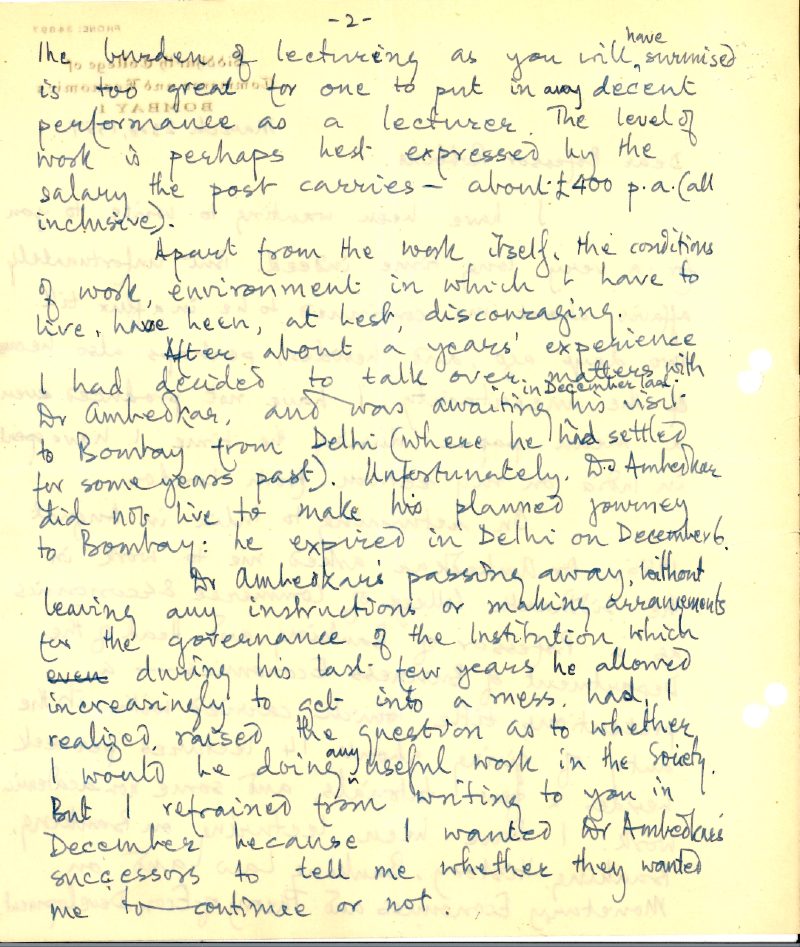 -2-
The burden of lecturing as you will have surmised
is too great for one to put in any decent
performance as a lecturer. The level of
work is perhaps best expressed by the
salary the post carries — about £400 p.a. (all
inclusive).
Apart from the work itself, the conditions
of work, environment in which I have to
live, have been, at best, discouraging.
After about a years' experience
I had decided to talk over matters with
Dr Ambedkar, and was awaiting in December last his visit
to Bombay from Delhi (where he had settled
for some years past). Unfortunately, Dr Ambedkar
did not live to make his planned journey
to Bombay: he expired in Delhi on December 6.
Dr Ambedkar's passing away, without
leaving any instructions or making arrangements
for the governance of the Institution which
even during his last few years he allowed
increasingly to get into a mess, had, I
realized, raised the question as to whether
I would be doing any useful work in the Society.
But I refrained from writing to you in
December because I wanted Dr Ambedkar's
successors to tell me whether they wanted
me to continue or not.